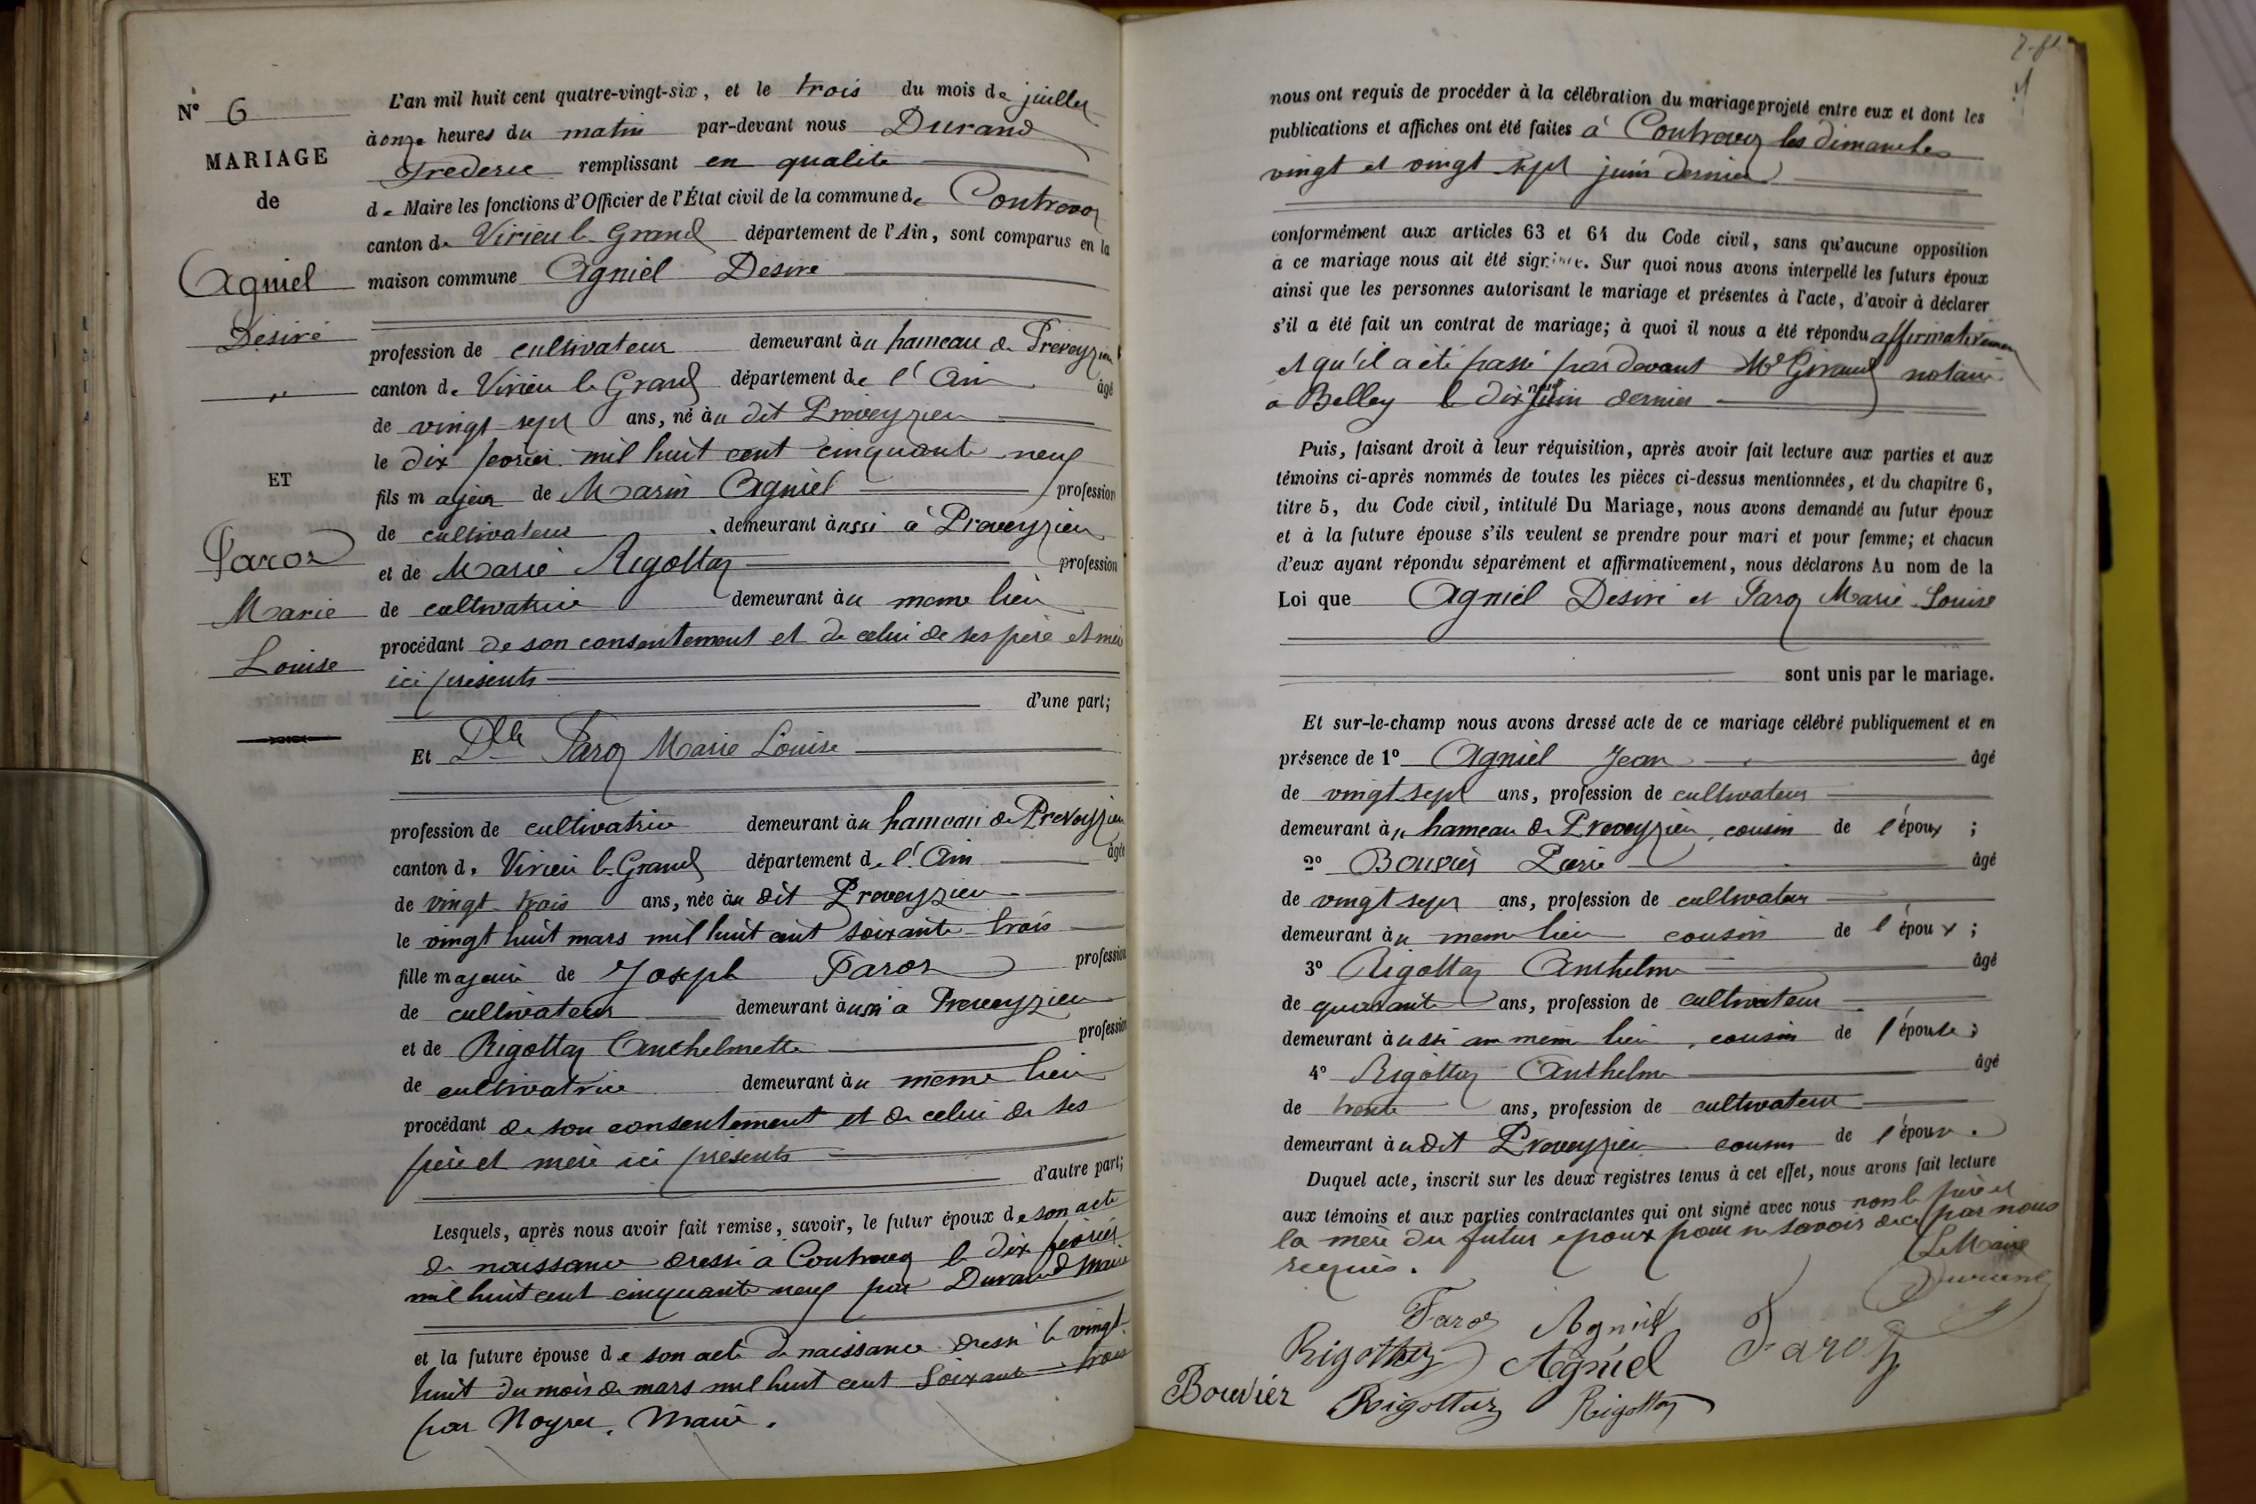 N° 6
MARIAGE
de
Agniel
Désiré
"
ET
Faroz
Marie
Louise
L'an mil huit cent quatre-vingt-six, et le trois du mois de juillet
à onze heures du matin par-devant nous Durand
Frederic remplissant en qualité
de Maire les fonctions d'Officier de l'État civil de la commune de Contrevoz
canton de Virieu le Grand département de l'Ain, sont comparus en la
maison commune Agniel Désiré
profession de cultivateur demeurant au hameau de Preveyzieu
canton de Virieu le Grand département de l'Ain âgé
de vingt sept ans, né au dit Preveyzieu
le dix fevrier mil huit cent cinquante neuf
fils majeur de Marin Agniel profession
de cultivateur demeurant aussi à Preveyzieu
et de Marie Rigottaz profession
de cultivatrice demeurant au meme lieu
procédant de son consentement et de celui de ses père et mère
ici présents
d'une part;
Et Dlle Faroz Marie Louise
profession de cultivatrice demeurant au hameau de Preveyzieu
canton de Virieu le Grand département de l'Ain âgée
de vingt trois ans, née au dit Preveyzieu
le vingt huit mars mil huit cent soixante trois
fille majeure de Joseph Faroz profession
de cultivateur demeurant aussi à Preveyzieu
et de Rigottaz Anthelmette profession
de cultivatrice demeurant au meme lieu
procédant de son consentement et de celui de ses
père et mère ici présents
d'autre part;
Lesquels, après nous avoir fait remise, savoir, le futur époux de son acte
de naissance dressé à Contrevoz le dix fevrier
mil huit cent cinquante neuf par Durand Maire
et la future épouse de son acte de naissance dressé le vingt
huit du mois de mars mil huit cent soixante trois
par Maire.
nous ont requis de procéder à la célébration du mariage projeté entre eux et dont les
publications et affiches ont été faites à Contrevoz les dimanches
vingt et vingt sept juin dernier
conformément aux articles 63 et 64 du Code civil, sans qu'aucune opposition
à ce mariage nous ait été signifiée. Sur quoi nous avons interpellé les futurs époux
ainsi que les personnes autorisant le mariage et présentes à l'acte, d'avoir à déclarer
s'il a été fait un contrat de mariage; à quoi il nous a été répondu affirmativement
et qu'il a été passé par devant Me Giraud notaire
à Belley le dix neuf juin dernier
Puis, faisant droit à leur réquisition, après avoir fait lecture aux parties et aux
témoins ci-après nommés de toutes les pièces ci-dessus mentionnées, et du chapitre 6,
titre 5, du Code civil, intitulé Du Mariage, nous avons demandé au futur époux
et à la future épouse s'ils veulent se prendre pour mari et pour femme; et chacun
d'eux ayant répondu séparément et affirmativement, nous déclarons Au nom de la
Loi que Agniel Désiré et Faroz Marie Louise
sont unis par le mariage.
Et sur-le-champ nous avons dressé acte de ce mariage célébré publiquement et en
présence de 1° Agniel Jean âgé
de vingt sept ans, profession de cultivateur
demeurant au hameau de Preveyzieu, cousin de l'époux ;
2° Bouvier âgé
de vingt sept ans, profession de cultivateur
demeurant au meme lieu cousin de l'époux ;
3° Rigottaz Anthelme âgé
de quarante ans, profession de cultivateur
demeurant aussi au meme lieu, cousin de l'épouse ;
4° Rigottaz Anthelme âgé
de trente ans, profession de cultivateur
demeurant au dit Preveyzieu cousin de l'épouse.
Duquel acte, inscrit sur les deux registres tenus à cet effet, nous avons fait lecture
aux témoins et aux parties contractantes qui ont signé avec nous non le père et
la mère du futur époux pour ne savoir de ce par nous
requis.
Le Maire
Durand
Faroz Agniel
Rigottaz Agniel Faroz
Bouvier Rigottaz Rigottaz